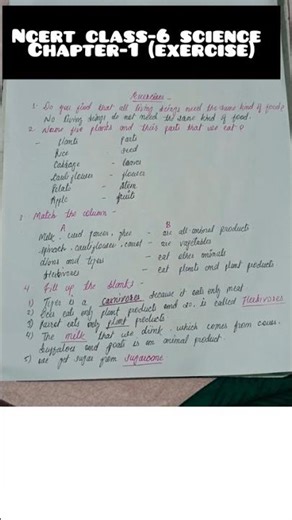 NCERT CLASS-6 SCIENCE
CHAPTER-1 (EXERCISE)
Exercises -
1. Do you find that all living beings need the same kind of food?
No living beings do not need the same kind of food.
2. Name five plants and their parts that we eat?
- Plants Parts
Rice - seed
Cabbage - leaves
Cauliflower - flower
Potato - stem
Apple - fruit
3 Match the column -
A B
Milk, curd, paneer, ghee - are all animal product
spinach, cauliflower, carrot - are vegetables
lions and tigers - eat other animals
Herbivores - eat plants and plant products
4. Fill up the blanks -
1) Tiger is a carnivores because it eats only meat
2) eats only plant product and so, is called Herbivores
3) Parrot eats only plant products
4) The milk that we drink, which comes from cows,
buffaloes and goats is an animal product.
5) We get sugar from sugarcane